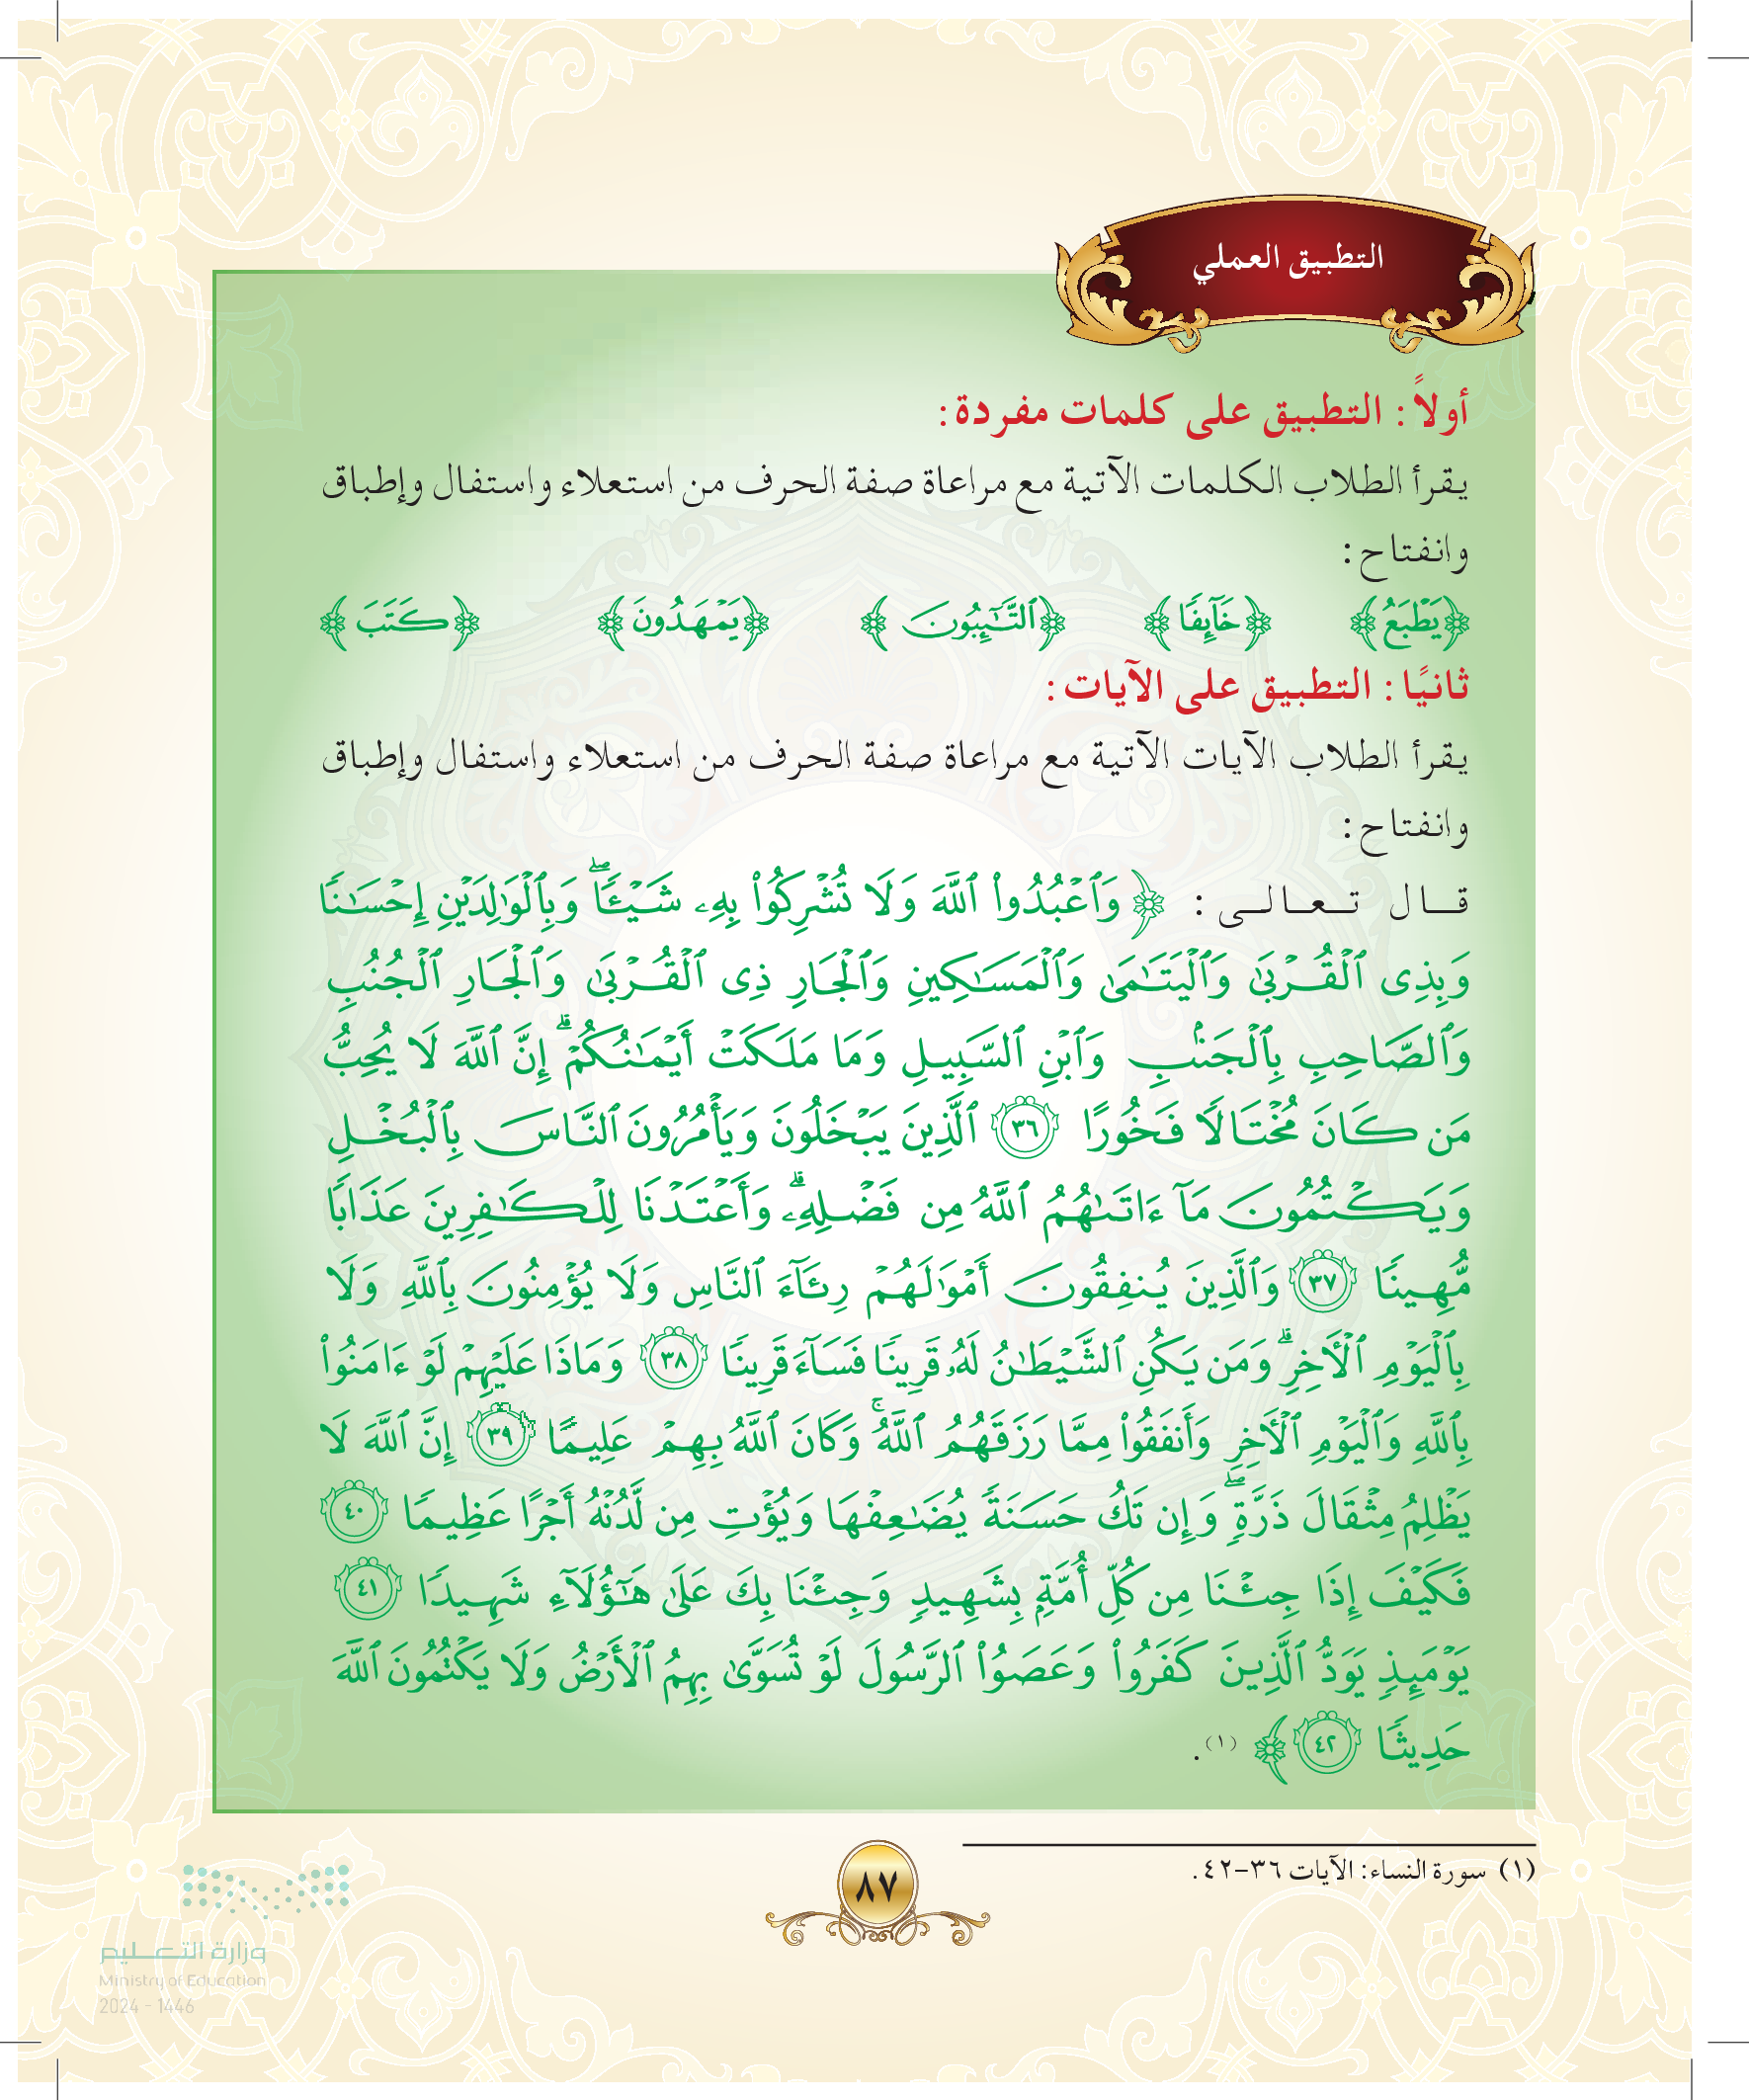 التطبيق العملي
أولاً: التطبيق على كلمات مفردة:
يقرأ الطلاب الكلمات الآتية مع مراعاة صفة الحرف من استعلاء واستفال وإطباق
وانفتاح:
﴿يَطۡبَعُ﴾ ﴿خَآئِفٗا﴾ ﴿ٱلتَّٰٓئِبُونَ﴾ ﴿يَمۡهَدُونَ﴾ ﴿كَتَبَ﴾
ثانيًا: التطبيق على الآيات:
يقرأ الطلاب الآيات الآتية مع مراعاة صفة الحرف من استعلاء واستفال وإطباق
وانفتاح:
قال تعالى: ﴿وَٱعۡبُدُواْ ٱللَّهَ وَلَا تُشۡرِكُواْ بِهِۦ شَيۡـٔٗاۖ وَبِٱلۡوَٰلِدَيۡنِ إِحۡسَٰنٗا
وَبِذِي ٱلۡقُرۡبَىٰ وَٱلۡيَتَٰمَىٰ وَٱلۡمَسَٰكِينِ وَٱلۡجَارِ ذِي ٱلۡقُرۡبَىٰ وَٱلۡجَارِ ٱلۡجُنُبِ
وَٱلصَّاحِبِ بِٱلۡجَنۢبِ وَٱبۡنِ ٱلسَّبِيلِ وَمَا مَلَكَتۡ أَيۡمَٰنُكُمۡۗ إِنَّ ٱللَّهَ لَا يُحِبُّ
مَن كَانَ مُخۡتَالٗا فَخُورًا ٣٦ ٱلَّذِينَ يَبۡخَلُونَ وَيَأۡمُرُونَ ٱلنَّاسَ بِٱلۡبُخۡلِ
وَيَكۡتُمُونَ مَآ ءَاتَىٰهُمُ ٱللَّهُ مِن فَضۡلِهِۦۗ وَأَعۡتَدۡنَا لِلۡكَٰفِرِينَ عَذَابٗا
مُّهِينٗا ٣٧ وَٱلَّذِينَ يُنفِقُونَ أَمۡوَٰلَهُمۡ رِئَآءَ ٱلنَّاسِ وَلَا يُؤۡمِنُونَ بِٱللَّهِ وَلَا
بِٱلۡيَوۡمِ ٱلۡأٓخِرِۗ وَمَن يَكُنِ ٱلشَّيۡطَٰنُ لَهُۥ قَرِينٗا فَسَآءَ قَرِينٗا ٣٨ وَمَاذَا عَلَيۡهِمۡ لَوۡ ءَامَنُواْ
بِٱللَّهِ وَٱلۡيَوۡمِ ٱلۡأٓخِرِ وَأَنفَقُواْ مِمَّا رَزَقَهُمُ ٱللَّهُۚ وَكَانَ ٱللَّهُ بِهِمۡ عَلِيمًا ٣٩ إِنَّ ٱللَّهَ لَا
يَظۡلِمُ مِثۡقَالَ ذَرَّةٖۖ وَإِن تَكُ حَسَنَةٗ يُضَٰعِفۡهَا وَيُؤۡتِ مِن لَّدُنۡهُ أَجۡرًا عَظِيمٗا ٤٠
فَكَيۡفَ إِذَا جِئۡنَا مِن كُلِّ أُمَّةِۭ بِشَهِيدٖ وَجِئۡنَا بِكَ عَلَىٰ هَٰٓؤُلَآءِ شَهِيدٗا ٤١
يَوۡمَئِذٖ يَوَدُّ ٱلَّذِينَ كَفَرُواْ وَعَصَوُاْ ٱلرَّسُولَ لَوۡ تُسَوَّىٰ بِهِمُ ٱلۡأَرۡضُ وَلَا يَكۡتُمُونَ ٱللَّهَ
حَدِيثٗا ٤٢﴾ (١).
(١) سورة النساء: الآيات ٣٦-٤٢.
٨٧
وزارة التعليم
Ministry of Education
2024 - 1446